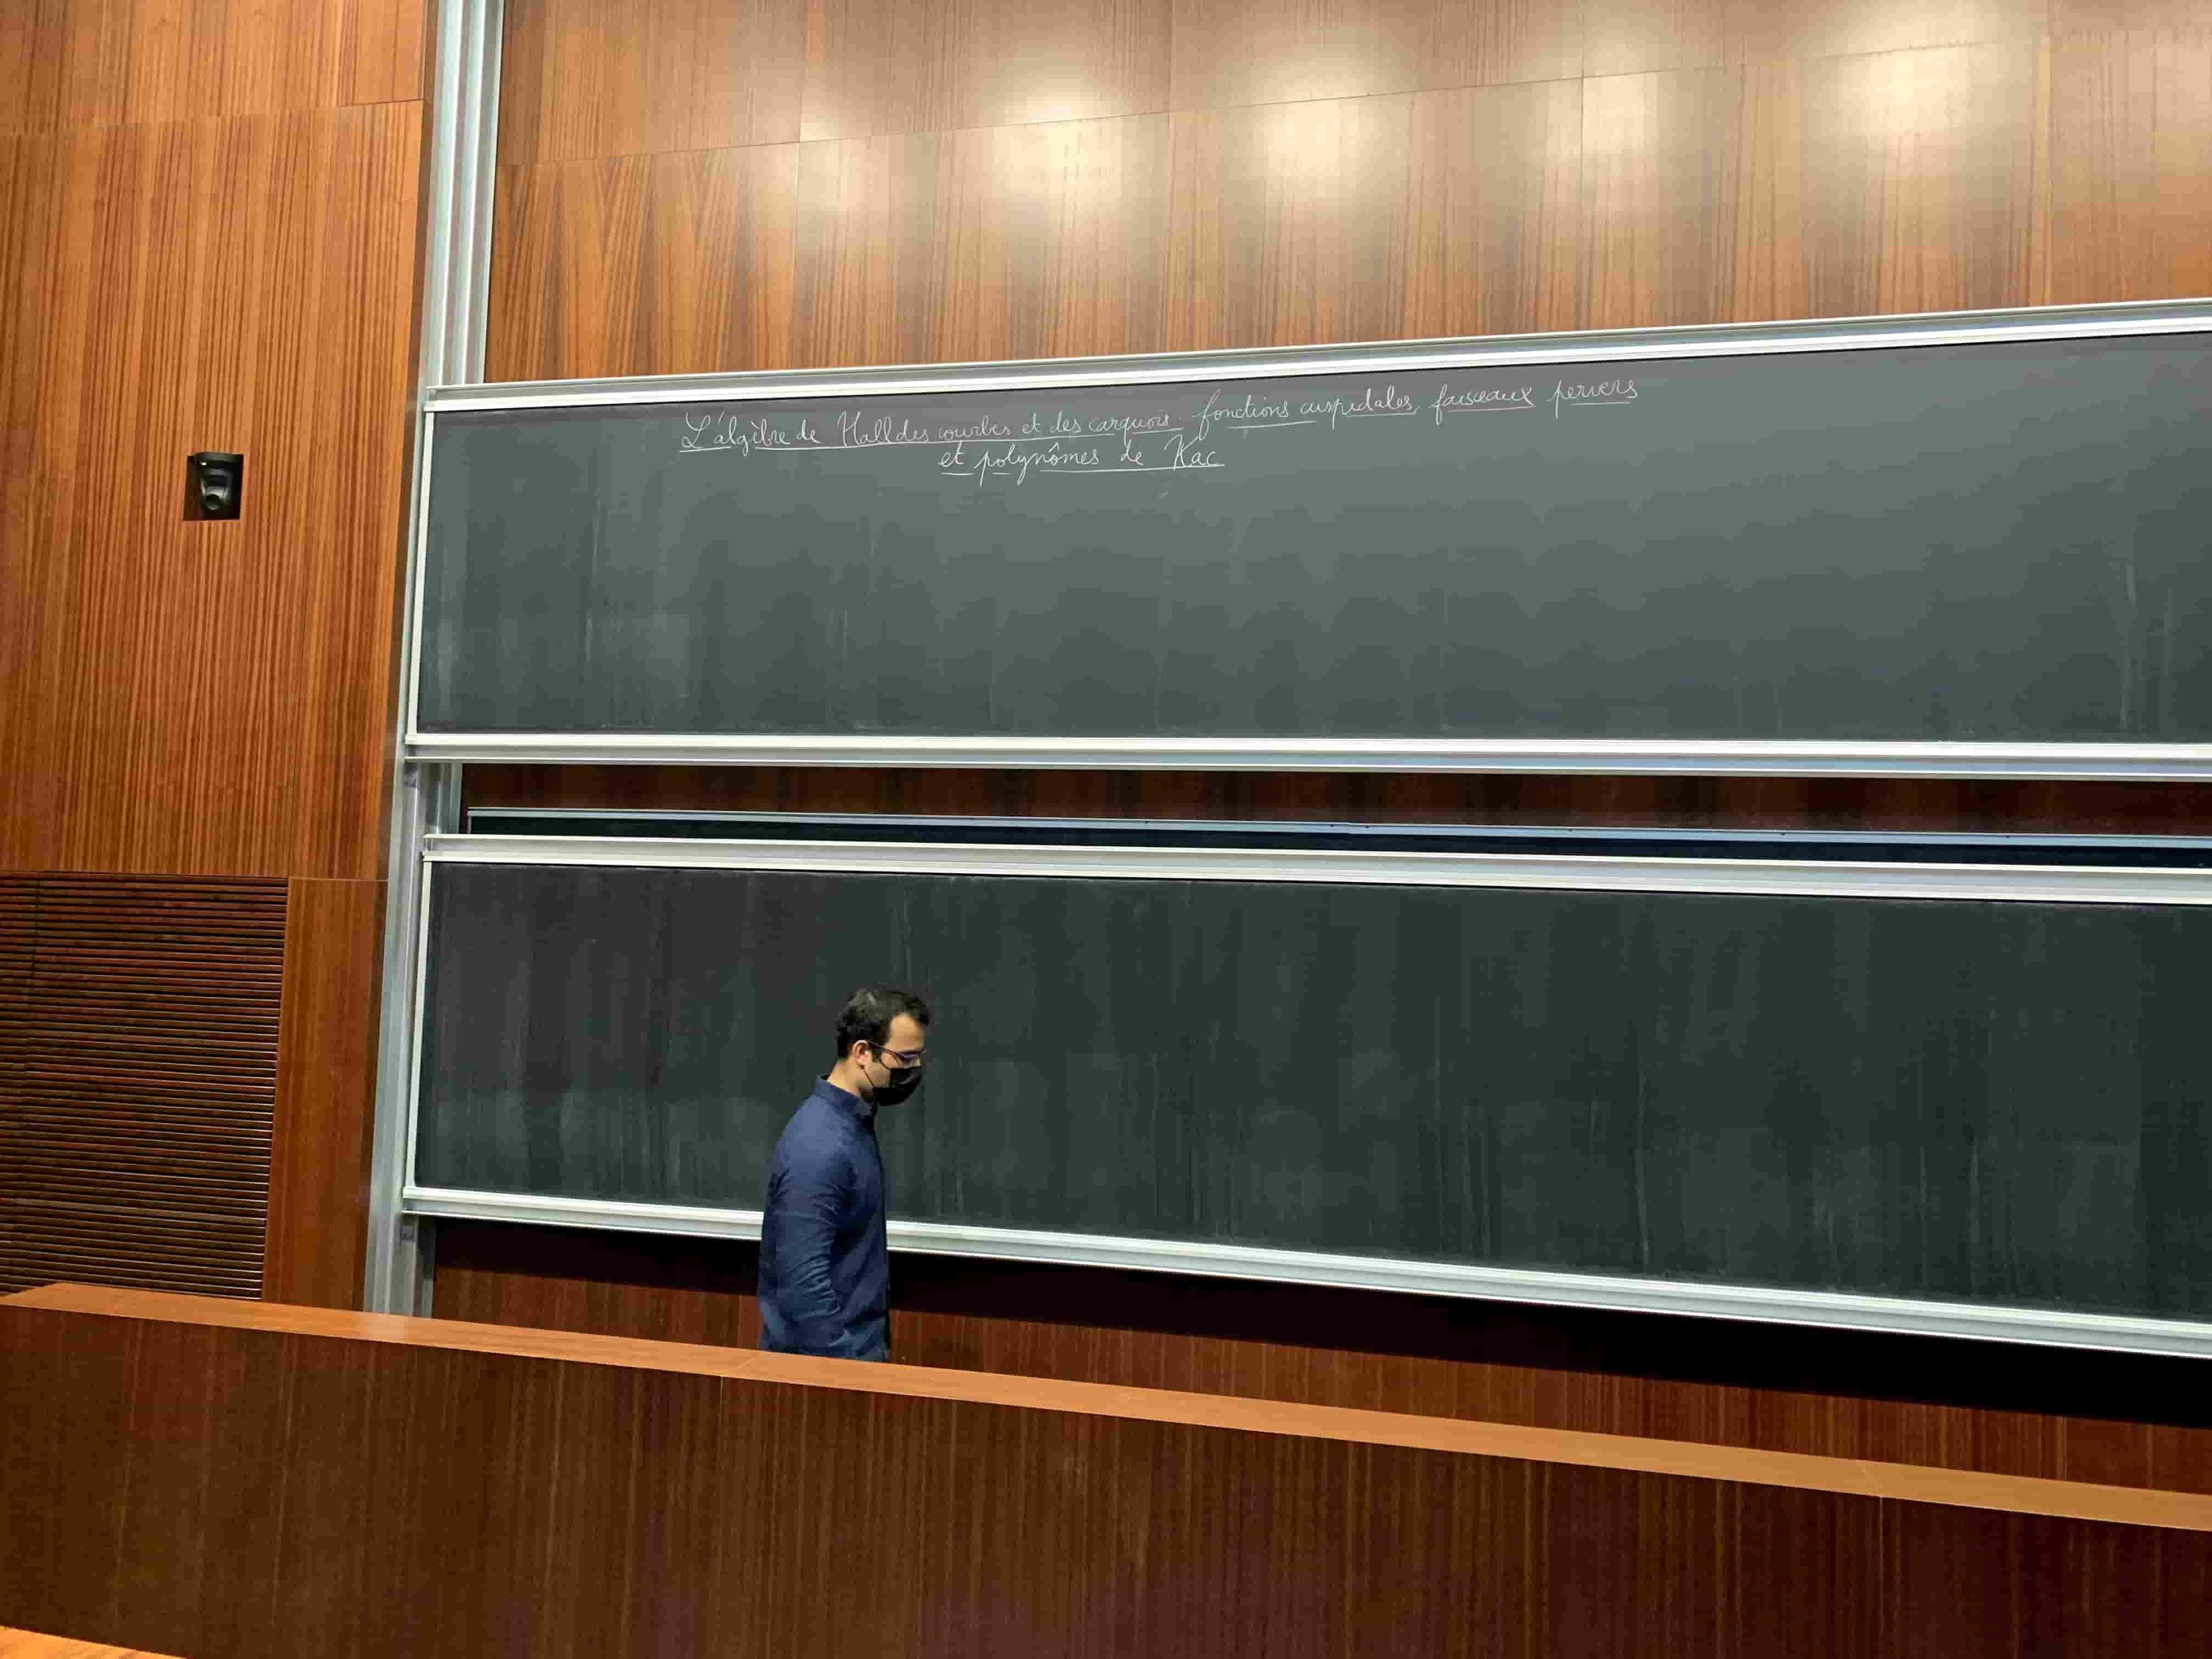 L'algèbre de Hall des courbes et des carquois. fonctions cuspidales, faisceaux pervers
et polynômes de Kac